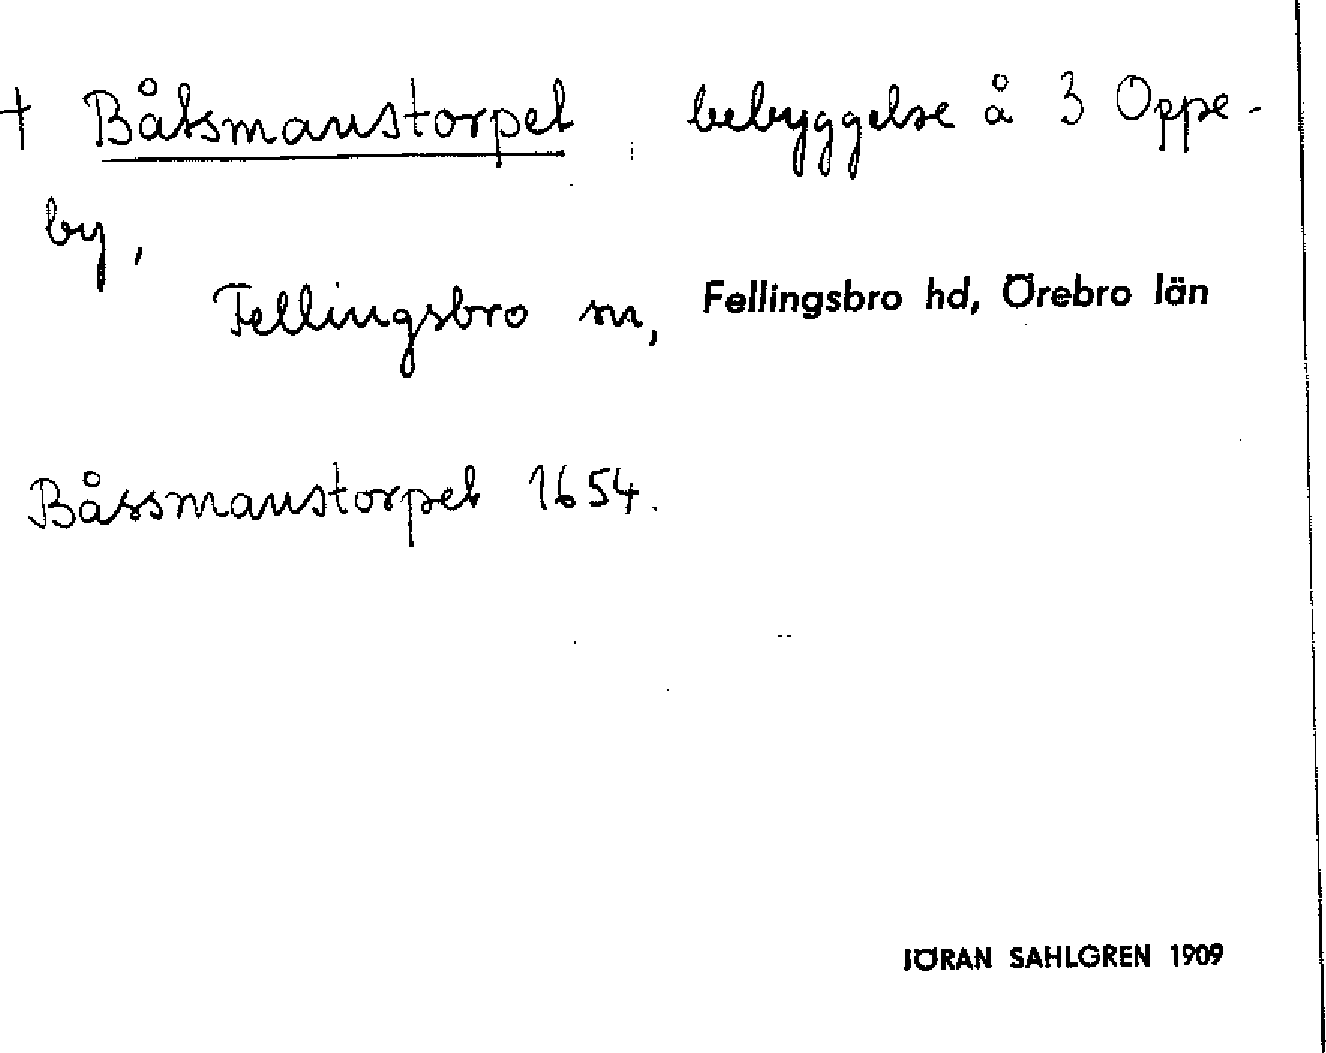 † Båtsmanstorpet, bebyggelse å 3 Oppe-
by,
Fellingsbro sn, Fellingsbro hd, Örebro län
Båssmanstorpet 1654.
JÖRAN SAHLGREN 1909